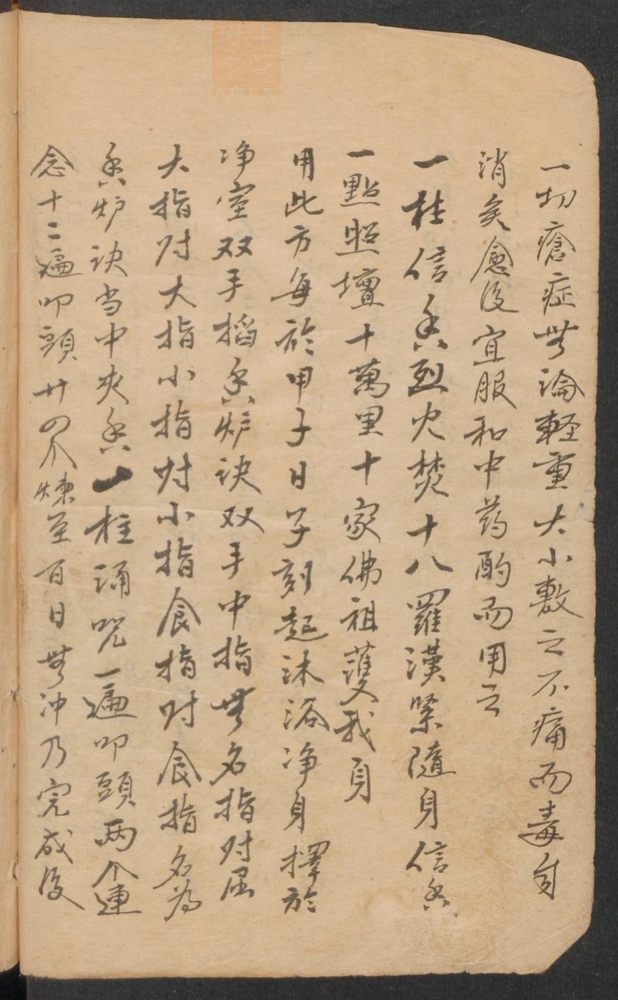 一切瘡症無論輕重大小敷之不痛而毒自
消矣愈後宜服和中药酌而用之
一柱信香烈火焚十八羅漢緊隨身信香
一點照壇十萬里十家佛祖護我身
用此方每於甲子日子刻起沐浴净身擇於
净室双手搯香炉訣双手中指無名指对屈
大指对大指小指对小指食指对食指名為
香炉訣当中夾香一柱誦咒一遍叩頭两个連
念十二遍叩頭廿四个煉至百日無冲乃完成後